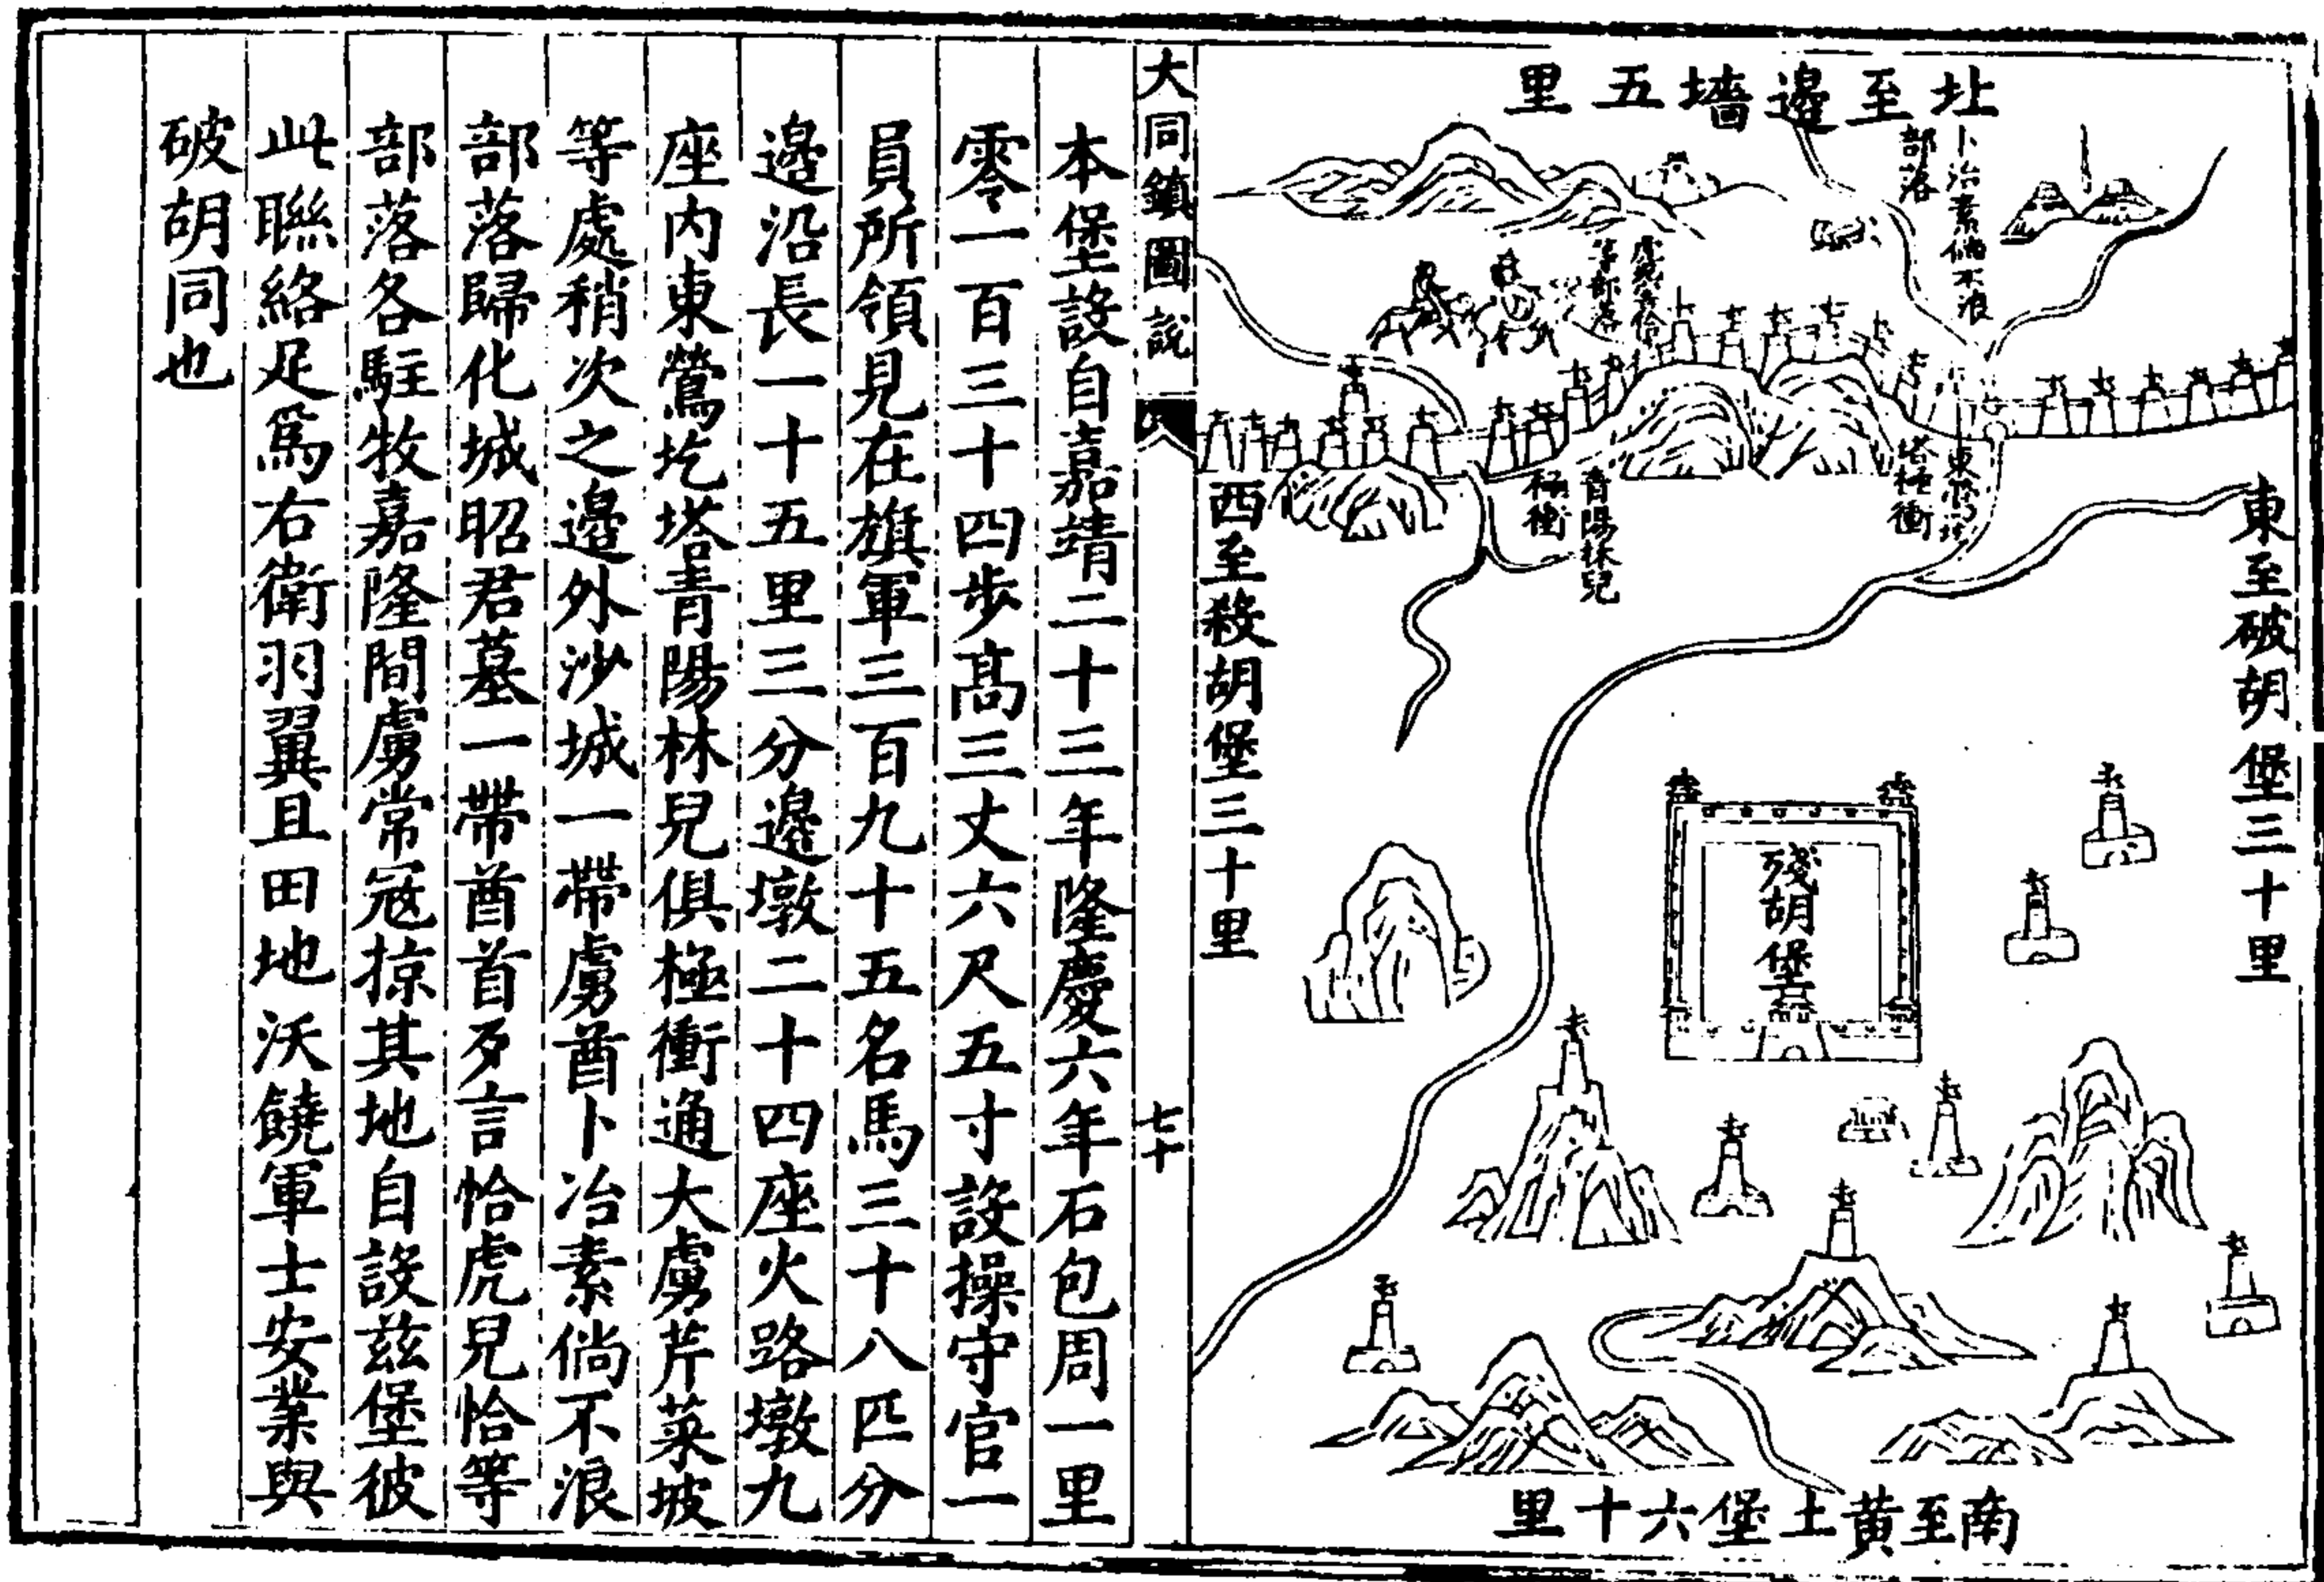 北至邊墻五里
卜冶素倘不浪
部落
虎兒害恰
等部落
東鶯圪
塔極衝
青陽林兒
極衝
東至破胡堡三十里
西至殺胡堡三十里
殘胡堡
南至黃土堡六十里
大同鎮圖說
七十
本堡設自嘉靖二十三年隆慶六年石包周一里
零一百三十四步高三丈六尺五寸設操守官一
員所領見在旗軍三百九十五名馬三十八匹分
邊沿長一十五里三分邊墩二十四座火路墩九
座內東鶯圪塔青陽林兒俱極衝通大虜芹菜坡
等處稍次之邊外沙城一帶虜酋卜冶素倘不浪
部落歸化城昭君墓一帶酋首歹言恰虎兒恰等
部落各駐牧嘉隆間虜常寇掠其地自設茲堡彼
此聯絡足為右衛羽翼且田地沃饒軍士安業與
破胡同也